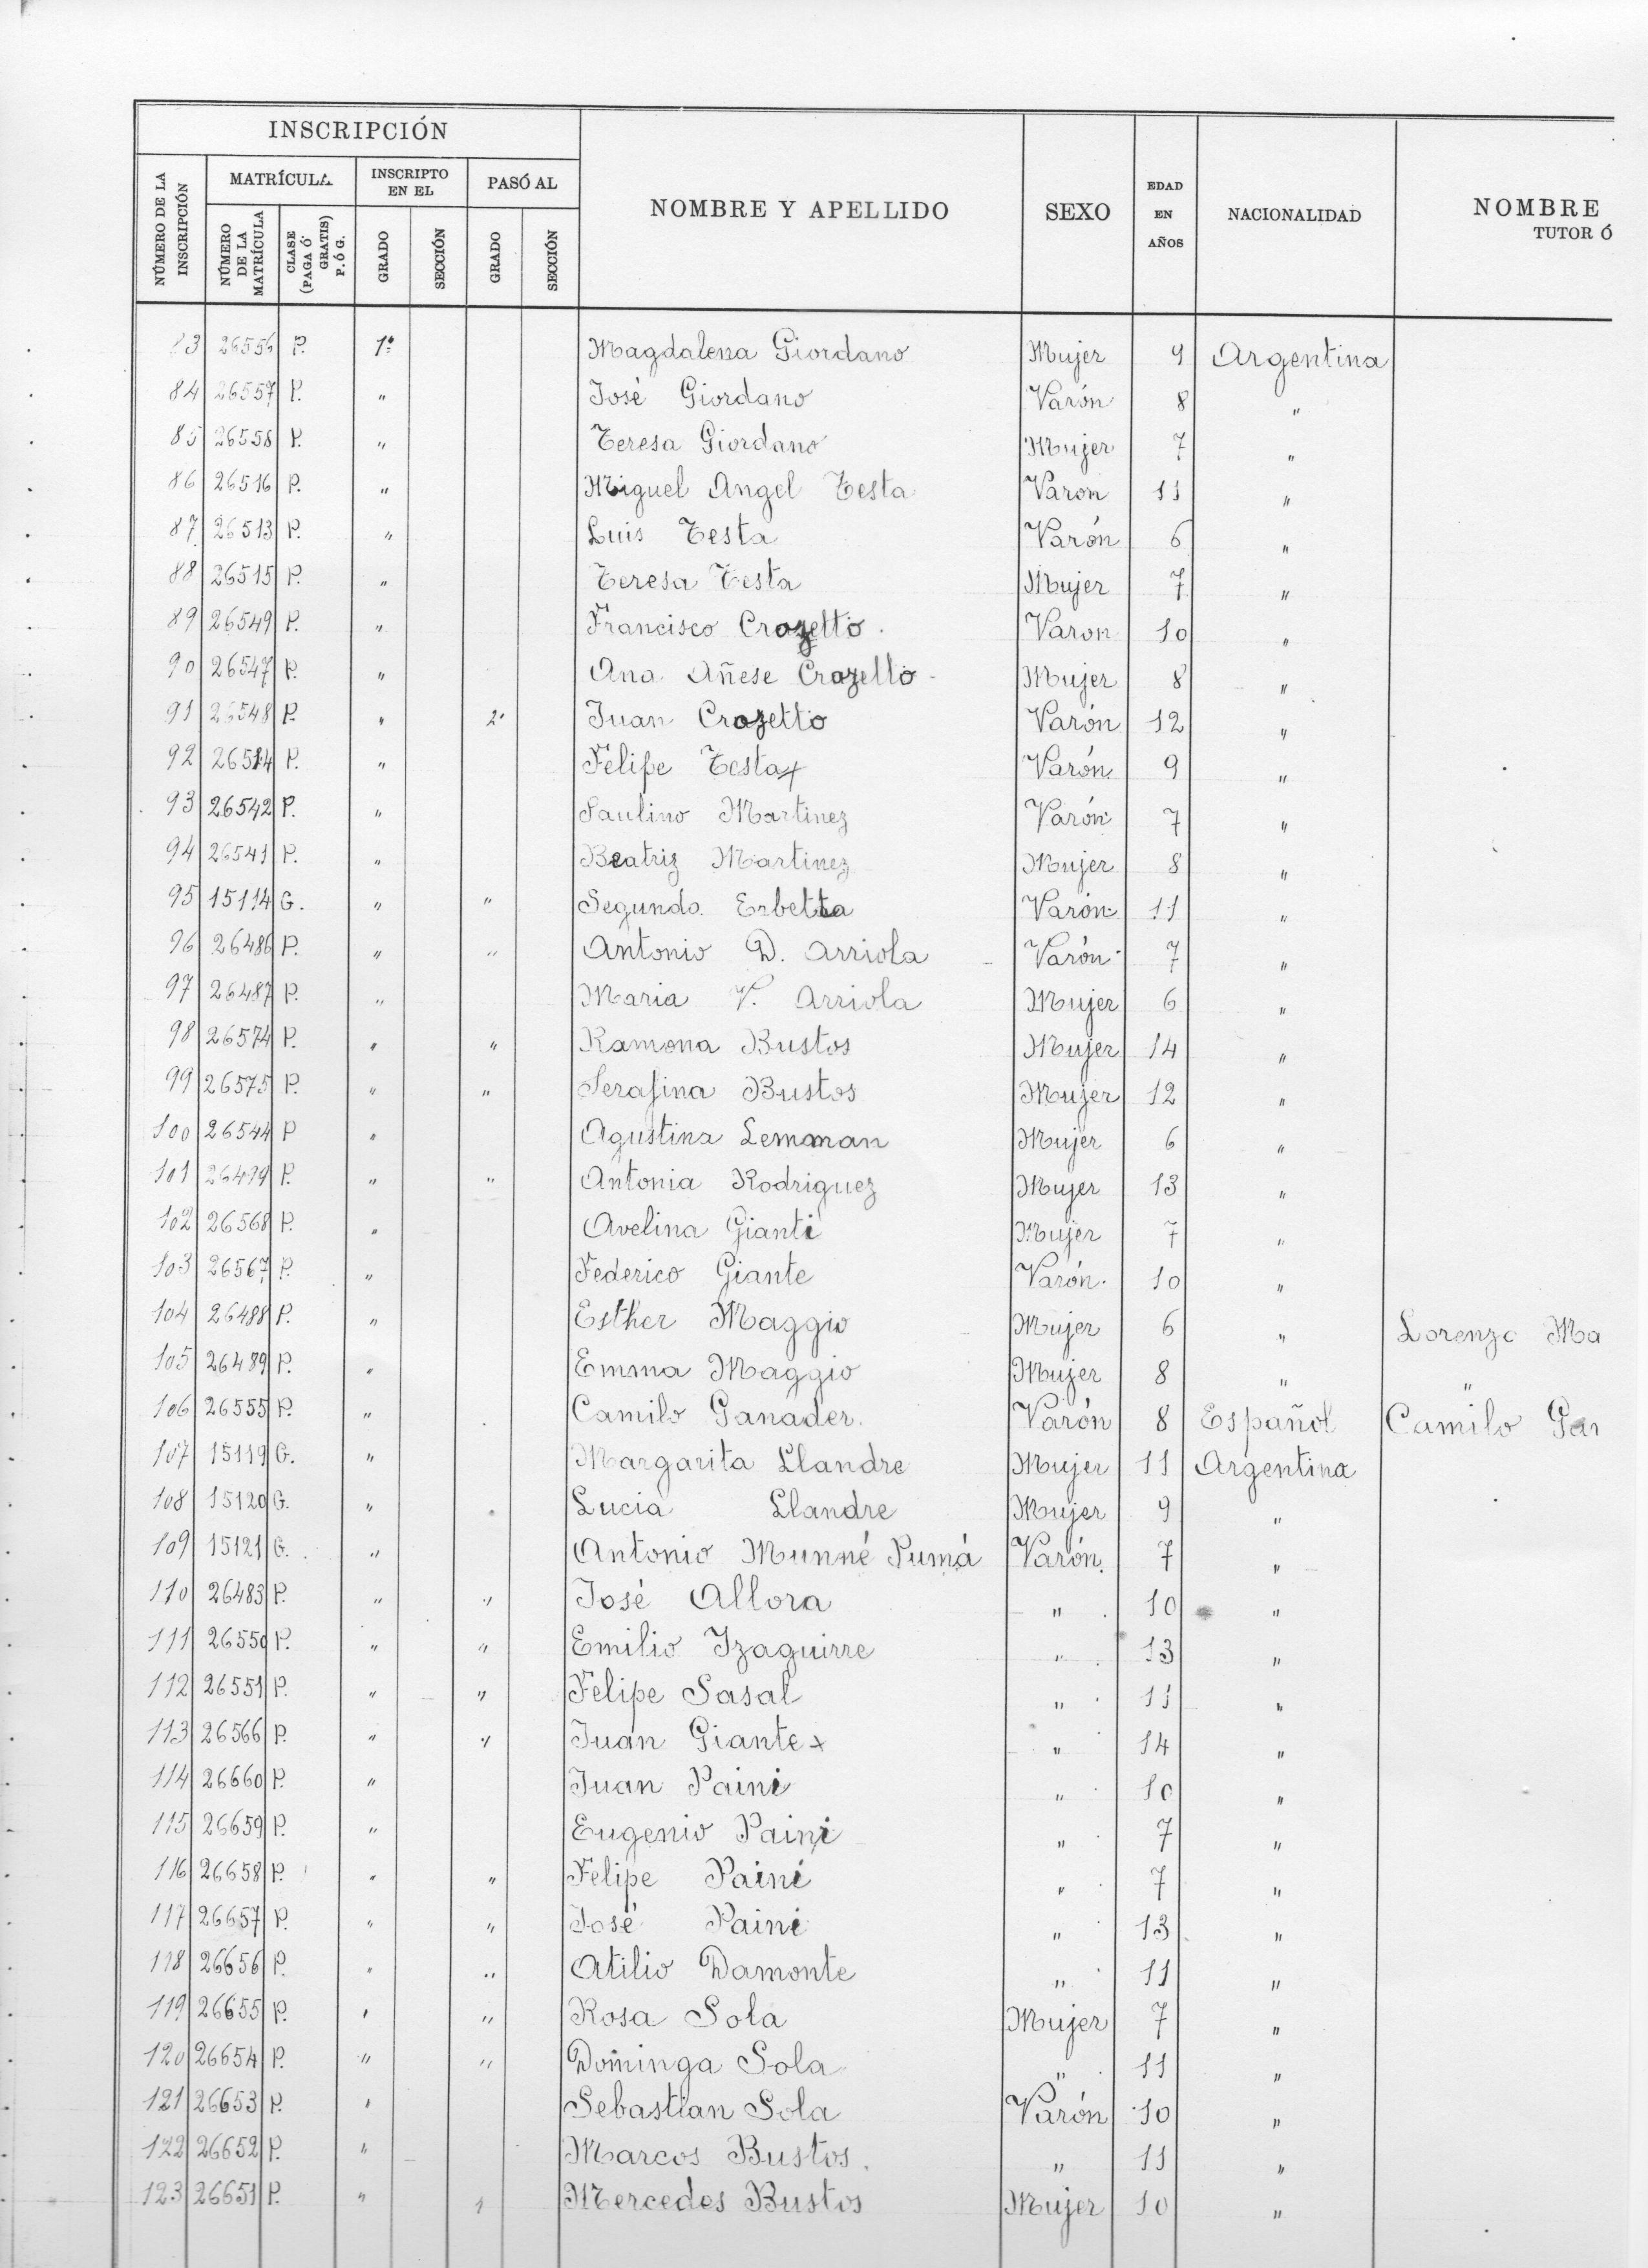 INSCRIPCIÓN
NÚMERO DE LA INSCRIPCIÓN
MATRÍCULA
INSCRIPTO EN EL
PASÓ AL
NOMBRE Y APELLIDO
SEXO
EDAD EN AÑOS
NACIONALIDAD
NOMBRE
TUTOR Ó
NÚMERO DE LA MATRÍCULA
CLASE (PAGA Ó GRATIS) P. Ó G.
GRADO
SECCIÓN
GRADO
SECCIÓN
83 26556 P. 1º Magdalena Giordano Mujer 9 Argentina
84 26557 P. " José Giordano Varón 8 "
85 26558 P. " Teresa Giordano Mujer 7 "
86 26516 P. " Miguel Angel Testa Varon 11 "
87 26513 P. " Luis Testa Varón 6 "
88 26515 P. " Teresa Testa Mujer 7 "
89 26549 P. " Francisco Crozetto. Varon 10 "
90 26547 P. " Ana Añese Crozetto Mujer 8 "
91 26548 P. " 2º Juan Crozetto Varón 12 "
92 26514 P. " Felipe Testa x Varón 9 "
93 26542 P. " Paulino Martinez Varón 7 "
94 26541 P. " Beatriz Martinez Mujer 8 "
95 15114 G. " " Segundo Erbetta Varón 11 "
96 26486 P. " " Antonio D. Arriola Varón 7 "
97 26487 P. " Maria V. Arriola Mujer 6 "
98 26574 P. " " Ramona Bustos Mujer 14 "
99 26575 P. " " Serafina Bustos Mujer 12 "
100 26544 P " Agustina Lemman Mujer 6 "
101 26479 P. " " Antonia Rodriguez Mujer 13 "
102 26568 P. " Avelina Gianti Mujer 7 "
103 26567 P. " Federico Giante Varón 10 "
104 26488 P. " Esther Maggio Mujer 6 " Lorenzo Ma
105 26489 P. " Emma Maggio Mujer 8 " "
106 26555 P. " Camilo Ganader. Varón 8 Español Camilo Gan
107 15119 G. " Margarita Llandre Mujer 11 Argentina
108 15120 G. " Lucia Llandre Mujer 9 "
109 15121 G. " Antonio Munné Pumá Varón. 7 "
110 26483 P. " " José Allora " 10 "
111 26550 P. " " Emilio Izaguirre " 13 "
112 26551 P. " " Felipe Sasal " 11 "
113 26566 P. " " Juan Giante x " 14 "
114 26660 P. " Juan Paini " 10 "
115 26659 P. " Eugenio Paini " 7 "
116 26658 P. " " Felipe Paini " 7 "
117 26657 P. " " José Paini " 13 "
118 26656 P. " " Atilio Damonte " 11 "
119 26655 P. " " Rosa Sola Mujer 7 "
120 26654 P. " " Dominga Sola " 11 "
121 26653 P. " Sebastian Sola Varón 10 "
122 26652 P. " Marcos Bustos. " 11 "
123 26651 P. " " Mercedes Bustos Mujer 10 "